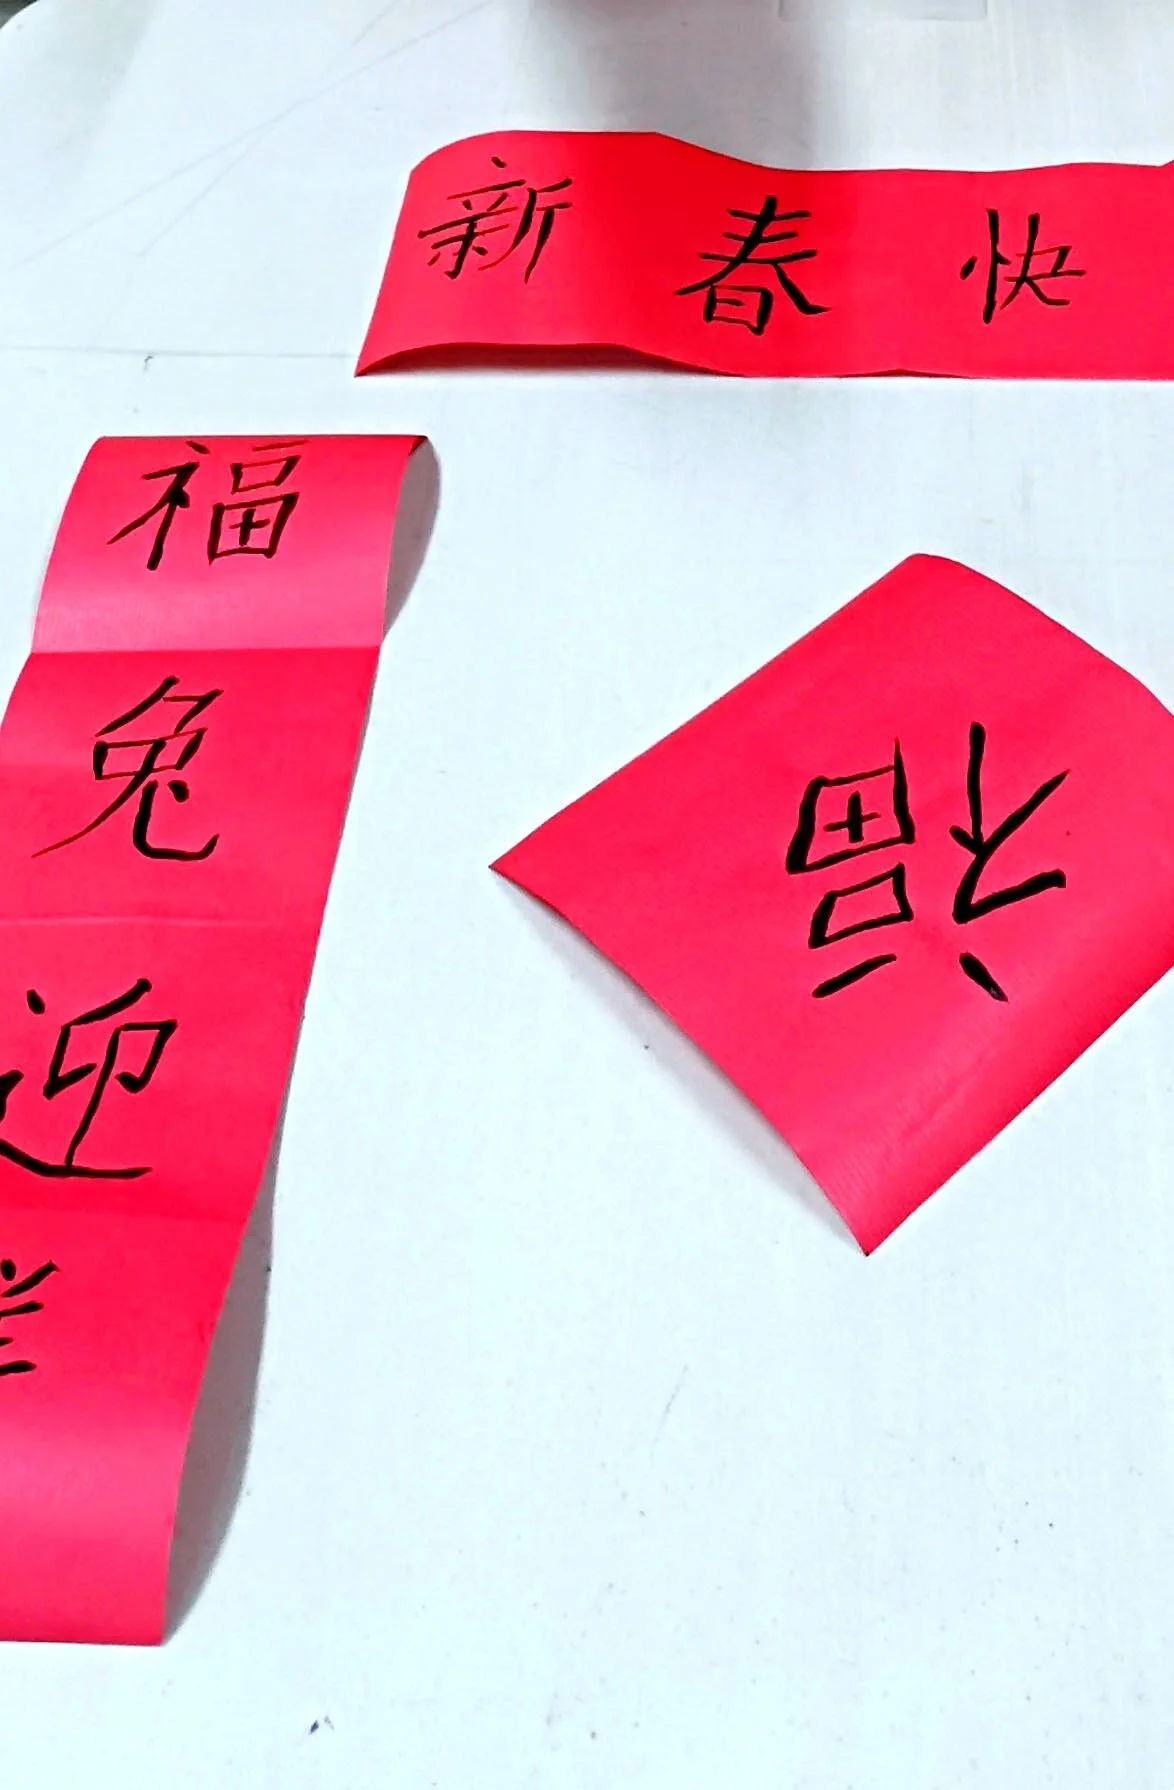 新春快
福兔迎
福